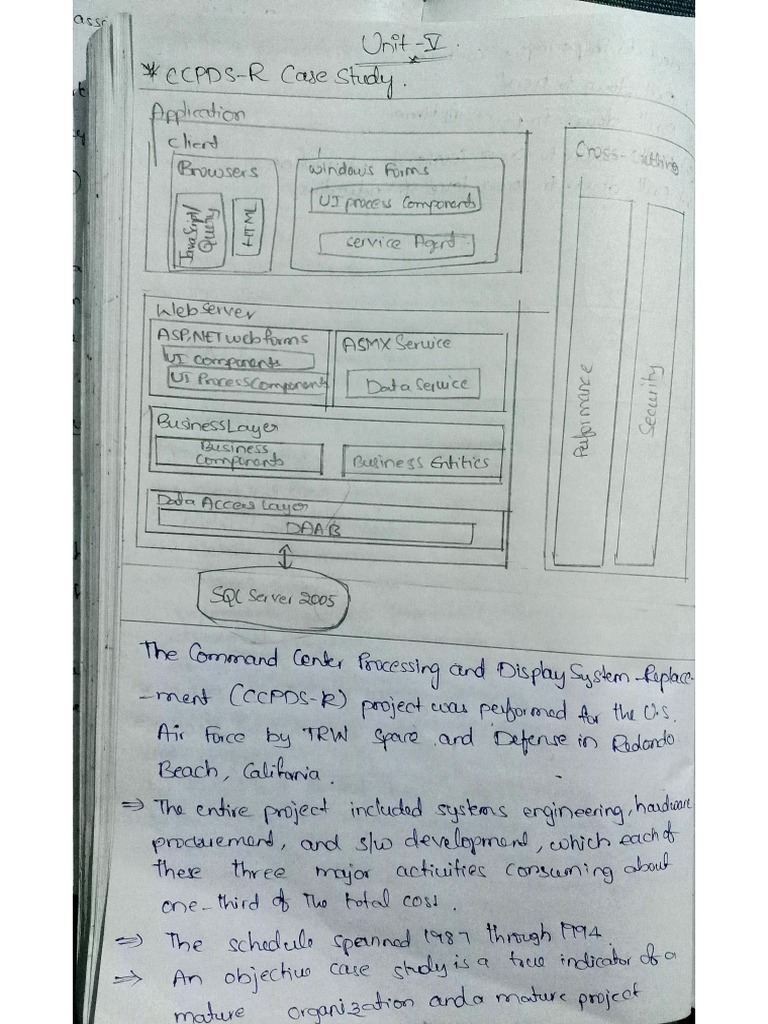 assi
Unit-V.
* CCPDS-R Case Study.
Application
client
Browsers
JavaScript/
Query
HTML
Windows Forms
UI process Components
Service Agent
Cross-Cutting
Performance
Security
Web Server
ASP.NET web forms
UI Components
UI Process Components
ASMX Service
Data Service
Business Layer
Business
Components
Business Entities
Data Access Layer
DAAB
SQL Server 2005
The Command Center Processing and Display System-Replace-
-ment (CCPDS-R) project was performed for the U.S.
Air Force by TRW Space and Defense in Redondo
Beach, California.
⇒ The entire project included systems engineering, hardware
procurement, and s/w development, which each of
these three major activities consuming about
one-third of the total cost.
⇒ The schedule spanned 1987 through 1994
⇒ An objective case study is a true indicator of a
mature organization and a mature project